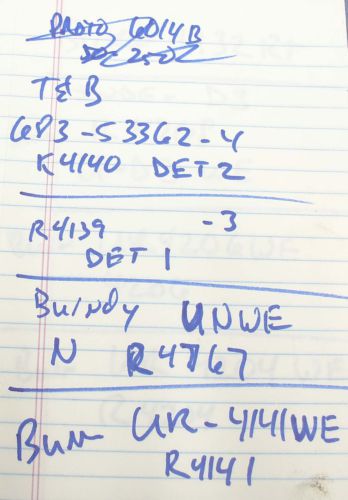 PROTO 6014B
250Z
T&B
683-53362-4
K4140 DET 2
R4139 -3
DET 1
Burndy UNWE
N R4767
Burn UR-4141WE
R4141